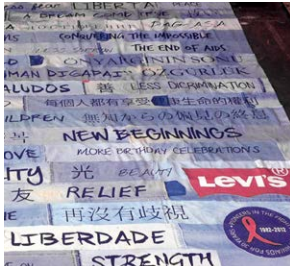 LIBERTA
A DREAM COME TRUE
PAG-ASA
CONQUERING THE IMPOSSIBLE
THE END OF AIDS
ONYARGININ SONU
HUMAN DIGAPAI ÖZGÜRLÜK
SALUDOS 善 LESS DISCRIMINATION
每個人都有享受健康生命的權利
CHILDREN 無知からの偏見の終息
NEW BEGINNINGS
LOVE MORE BIRTHDAY CELEBRATIONS
ITY 光 BEAUTY LEVI'S
友 RELIEF
再沒有歧視 1982-2012
LIBERDADE
STRENGTH